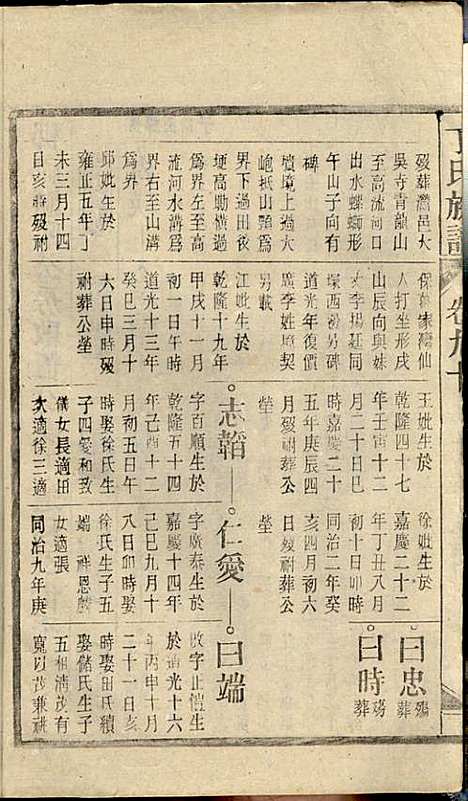 丁氏族譜 卷九十
歿葬灊邑大
吳寺青龍山
至高流河口
出水螺螄形
午山子向有
碑
塋境上過大
抵山頭為
界下過田後
埂高勘橫過
為界左至高
流河水溝為
界右至山溝
為界
邱妣生於
雍正五年丁
未三月十四
日亥時歿祔
保葉家灣仙
人打坐形戌
山辰向與妹
丈李瑒廷同
塚西塝另碑
道光年復價
廣李姓塝契
另載
江妣生於
乾隆十九年
甲戌十一月
初一日午時
道光十三年
癸巳三月十
六日申時歿
祔葬公塋
王妣生於
乾隆四十七
年壬寅十二
月二十日巳
時嘉慶二十
五年庚辰四
月歿祔葬公
塋
志韜
字百順生於
乾隆五十四
年己酉十二
月初五日午
時娶徐氏生
子四愛和致
儀女長適田
次適徐三適
徐妣生於
嘉慶二十二
年丁丑八月
初十日卯時
同治二年癸
亥四月初六
日歿祔葬公
塋
仁愛
字廣泰生於
嘉慶十四年
己巳九月十
八日卯時娶
徐氏生子五
端祥恩
女適張
同治九年庚
曰忠殤葬
曰時殤葬
曰端
改字正愷生
於道光十六
年丙申十月
二十一日亥
時娶田氏續
娶儲氏生子
五相清茂有
寬以茂兼祧